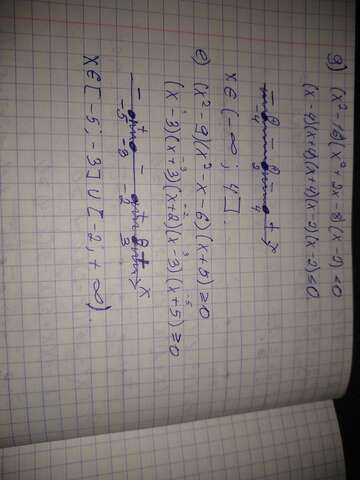 g) (x²-16)(x²+2x-8)(x-2)≤0
(x-4)(x+4)(x+4)(x-2)(x-2)≤0
- - - + x
-4 2 4
x∈(-∞; 4].
e) (x²-9)(x²-x-6)(x+5)≥0
3 -3 -2 3 -5
(x-3)(x+3)(x+2)(x-3)(x+5)≥0
- + - + + x
-5 -3 -2 3
x∈[-5;-3]∪[-2;+∞).